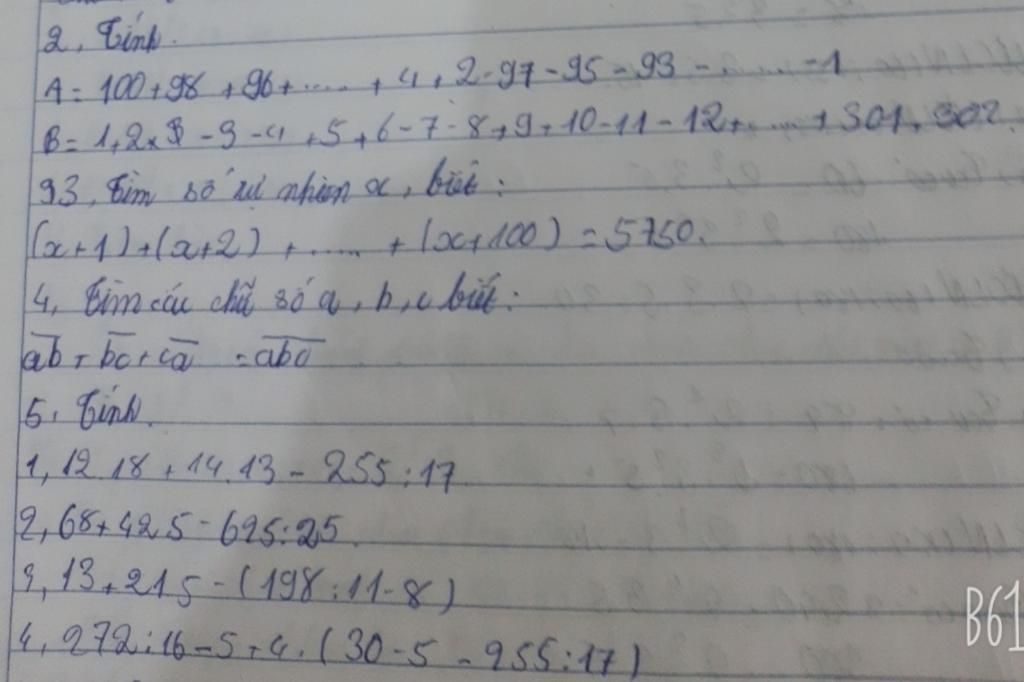 2, Tính.
A = 100 + 98 + 96 + ..... + 4 + 2 - 97 - 95 - 93 - ..... - 1
B = 1 + 2 - 3 - 4 + 5 + 6 - 7 - 8 + 9 + 10 - 11 - 12 + .... + 301 + 302
3, Tìm số tự nhiên x, biết:
(x+1) + (x+2) + ..... + (x+100) = 5750.
4, Tìm các chữ số a, b, c biết:
ab + bc + ca = abc
5, Tính.
1, 12.18 + 14.13 - 255 : 17
2, 68 + 42.5 - 625 : 25
3, 13 + 21.5 - (198 : 11 - 8)
4, 272 : 16 - 5 + 4. (30 - 5 - 255 : 17)
B61